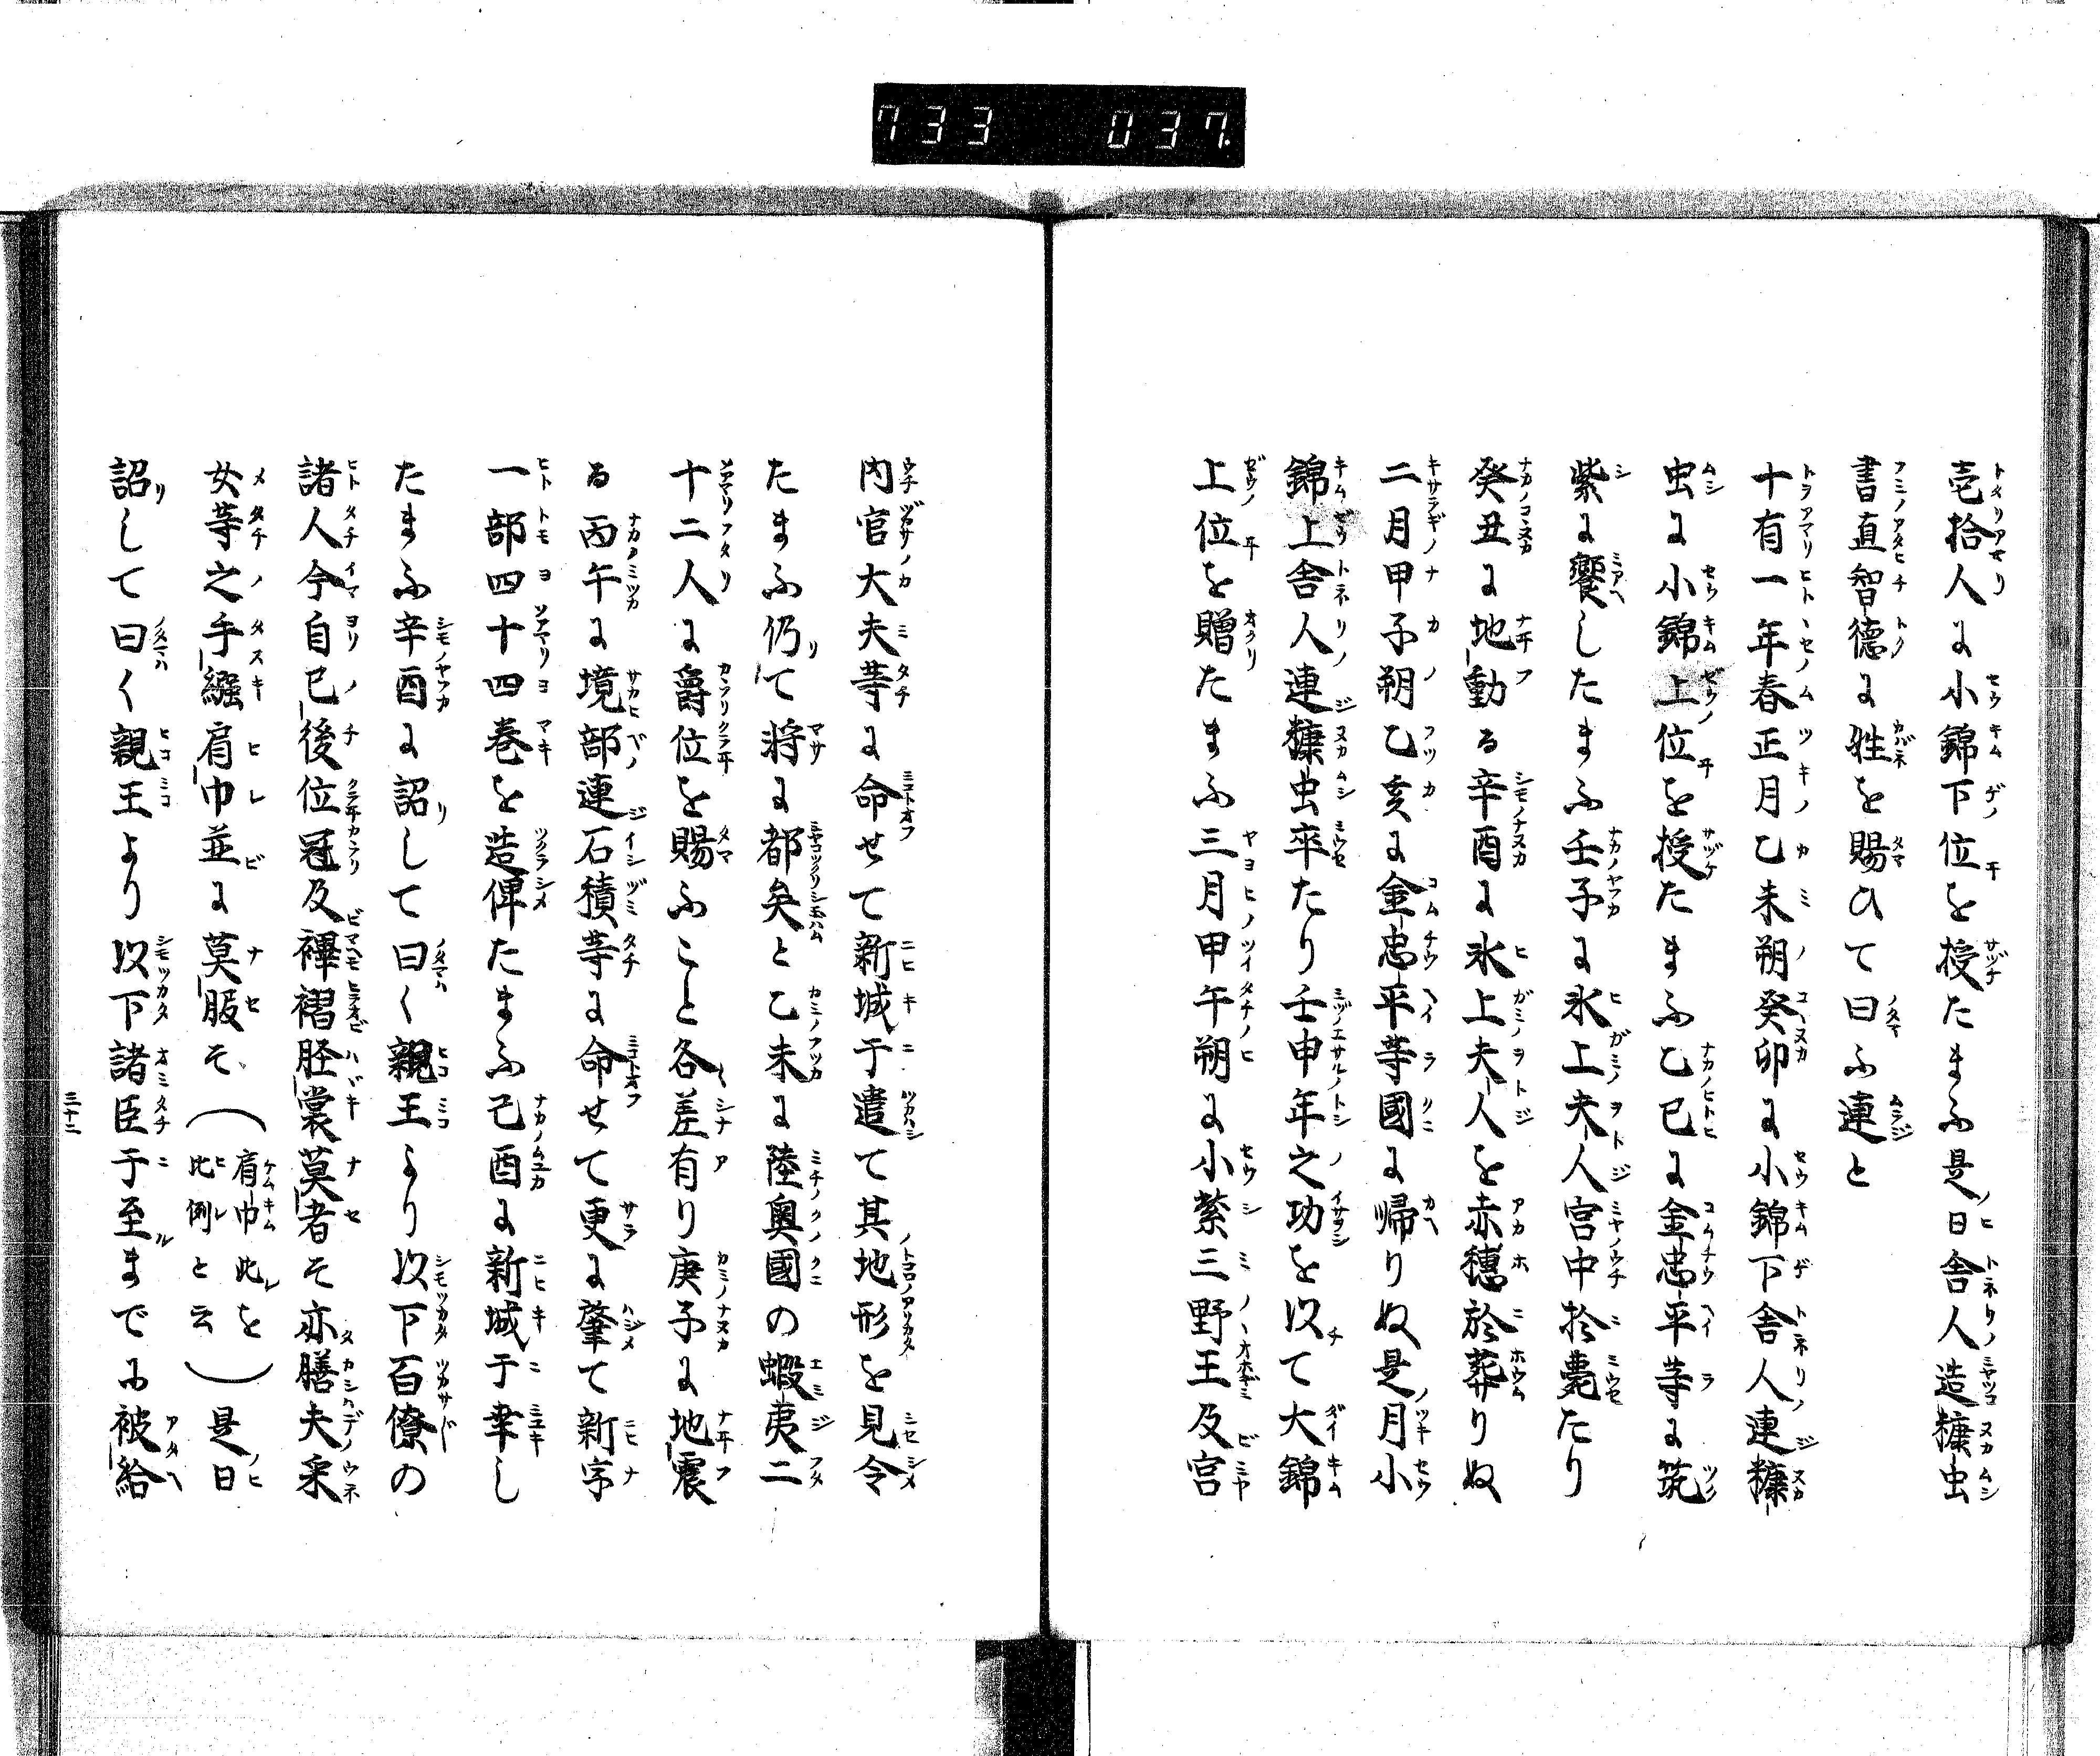 733 037.
壱拾人に小錦下位を授たまふ是日舎人造糠虫
書直智徳に姓を賜ひて曰ふ連と
十有一年春正月乙未朔癸卯に小錦下舎人連糠
虫に小錦上位を授たまふ乙巳に金忠平等に筑
紫に饗したまふ壬子に氷上夫人宮中於薨たり
癸丑に地動る辛酉に氷上夫人を赤穂於葬りぬ
二月甲子朔乙亥に金忠平等國に帰りぬ是月小
錦上舎人連糠虫卒たり壬申年之功を以て大錦
上位を贈たまふ三月甲午朔に小紫三野王及宮
内官大夫等に命せて新城于遣て其地形を見令
たまふ仍て将に都矣と乙未に陸奥國の蝦夷二
十二人に爵位を賜ふこと各差有り庚子に地震
る丙午に境部連石積等に命せて更に肇て新字
一部四十四巻を造俾たまふ己酉に新城于幸し
たまふ辛酉に詔して曰く親王より以下百僚の
諸人今自已後位冠及襅褶脛裳莫着そ亦膳夫采
女等之手繦肩巾並に莫服そ（肩巾此を
比例と云）是日
詔して曰く親王より以下諸臣于至までに被給
三十二